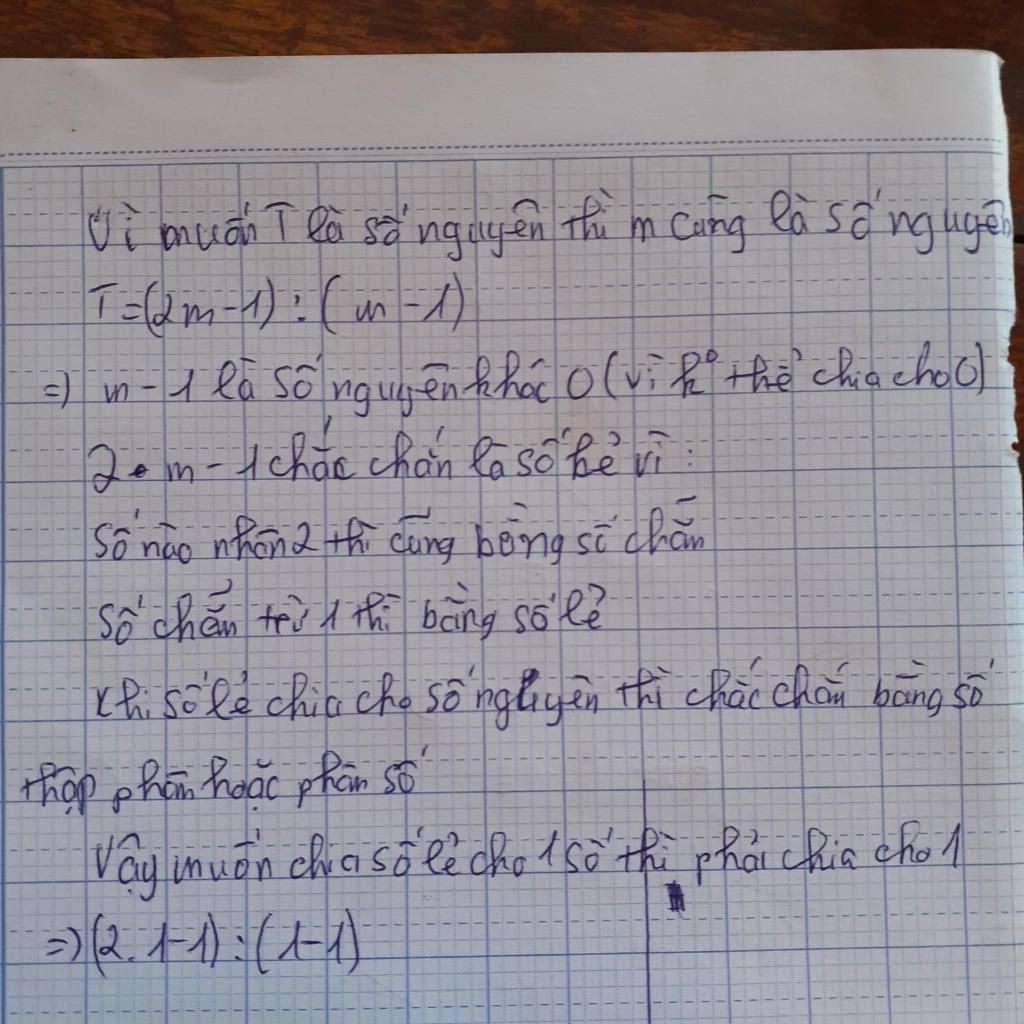 Vì muốn T là số nguyên thì m cũng là số nguyên
T=(2m-1):(m-1)
=) m-1 là số nguyên khác 0 (vì k° thể chia cho 0)
2•m-1 chắc chắn là số lẻ vì:
Số nào nhân 2 thì cũng bằng số chẵn
Số chẵn trừ 1 thì bằng số lẻ
Khi số lẻ chia cho số nguyên thì chắc chắn bằng số
thập phân hoặc phân số
Vậy muốn chia số lẻ cho 1 số thì phải chia cho 1
=) (2.1-1):(1-1)